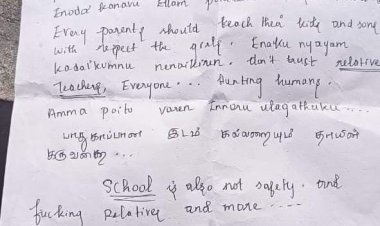 Enoda kanavu Ellam
Every parenty should teach their kids and sons
with respect the girls. Enaku nyayam
kadaikumnu nenaikiren. don't trust relatives
Teachers, Everyone... Hunting humans.
Amma poitu varen Innoru ulagathuku ....
பாதுகாப்பான இடம் கல்லறையும் தாயின்
கருவறை...
SCHOOL is also not safety. and
fucking Relatives and more ----